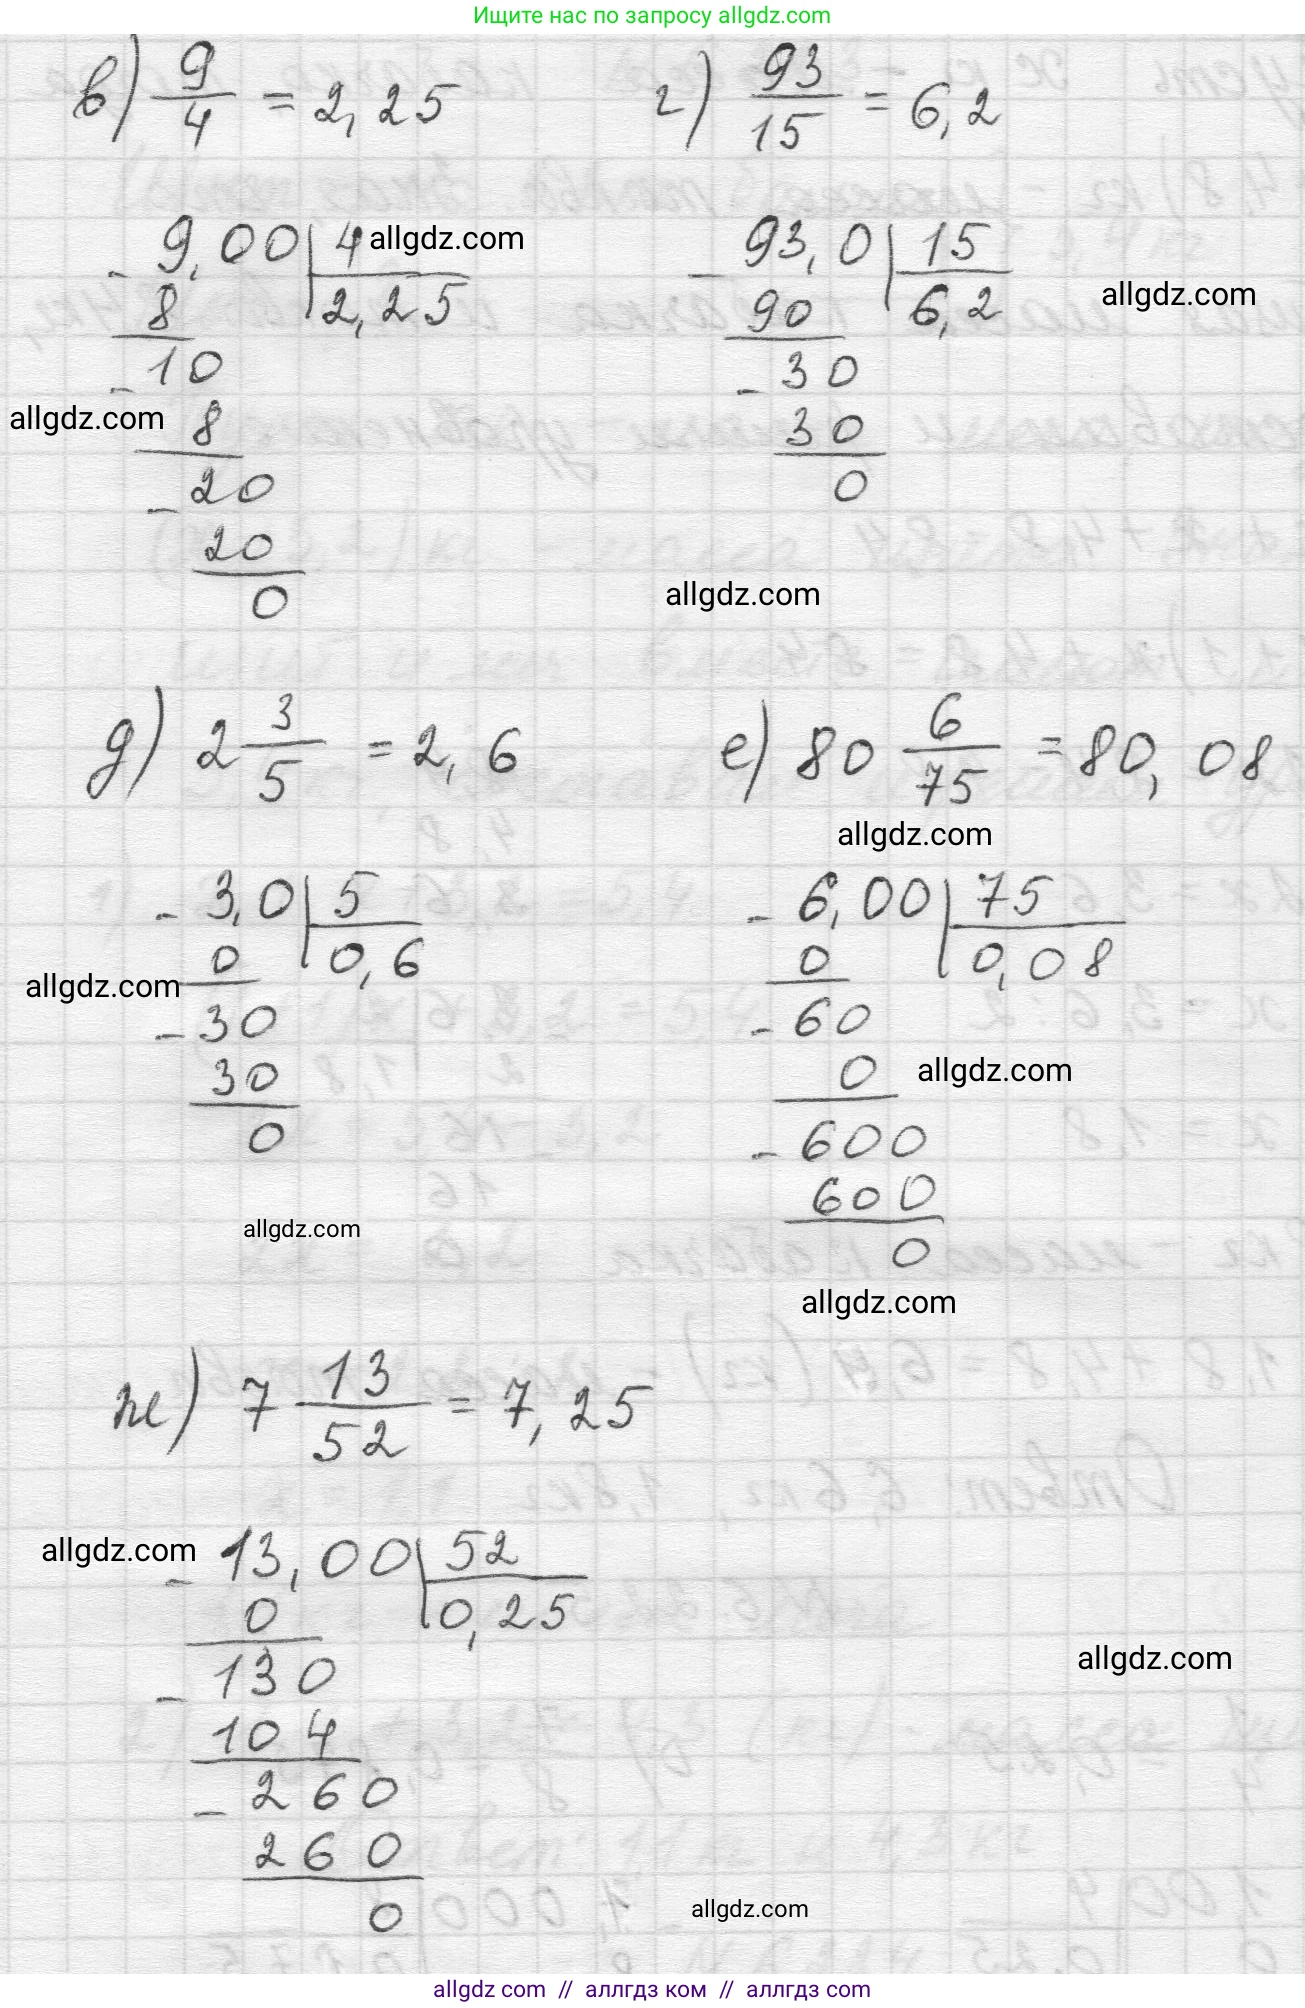 Ищите нас по запросу allgdz.com
в) 9/4 = 2,25
г) 93/15 = 6,2
- 9,00 | 4
8 | 2,25
- 10
8
- 20
20
0
allgdz.com
allgdz.com
- 93,0 | 15
90 | 6,2
- 30
30
0
allgdz.com
allgdz.com
д) 2 3/5 = 2,6
е) 80 6/75 = 80,08
allgdz.com
- 3,0 | 5
0 | 0,6
- 30
30
0
allgdz.com
allgdz.com
- 6,00 | 75
0 | 0,08
- 60
0
- 600
600
0
allgdz.com
allgdz.com
ж) 7 13/52 = 7,25
allgdz.com
- 13,00 | 52
0 | 0,25
- 130
104
- 260
260
0
allgdz.com
allgdz.com
allgdz.com // аллгдз ком // аллгдз.com